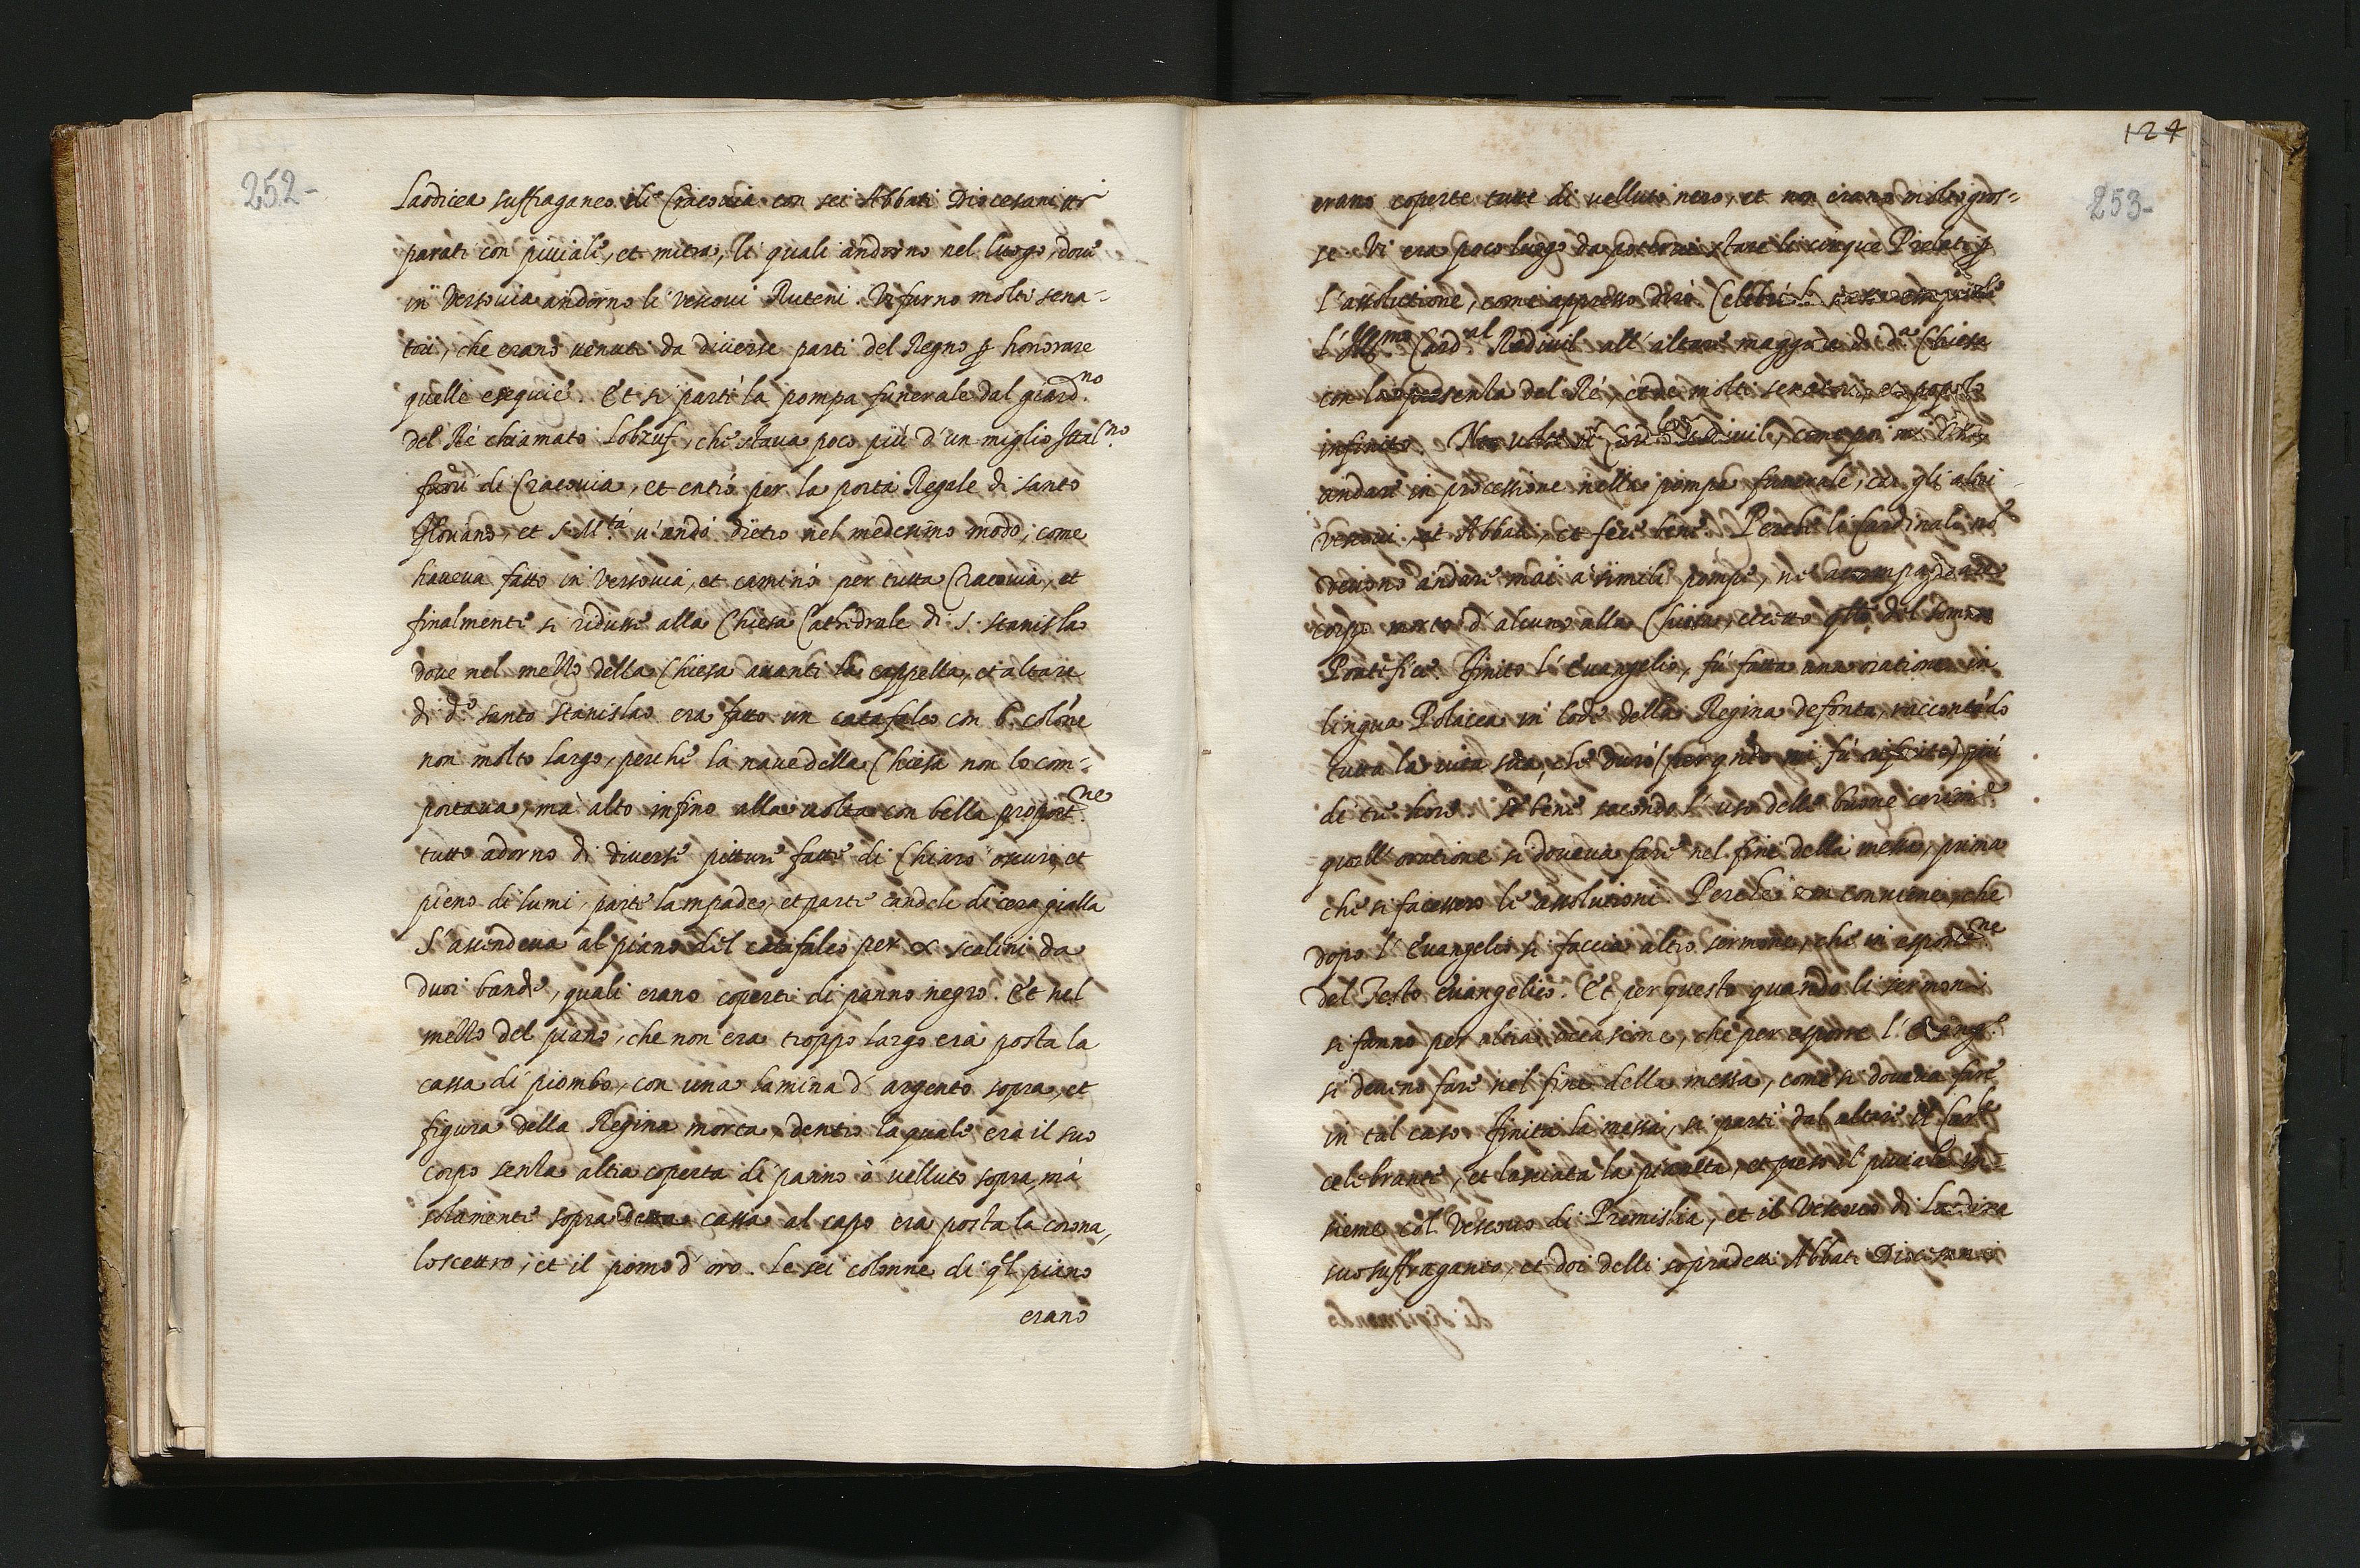 252-
Laodicea suffraganeo di Cracovia con sei Abbati Diocesani ap-
parati con piviale, et mitra, li quali andorno nel luogo, dove
in Versovia andorno li Vescovi Ruteni. Vi furno molti sena-
tori, che erano venuti da diverse parti del Regno p honorare
quelle esequie. Et si partì la pompa funerale dal giard.no
del Rè chiamato Lobzuf, che stava poco più d'un miglio Ital.no
fuori di Cracovia, et entrò per la porta Regale di santo
Floriano, et S. M.tà v'andò dietro nel medesimo modo, come
haveva fatto in Versovia, et caminò per tutta Cracovia, et
finalmente si ridusse alla Chiesa Cathedrale di S. Stanislao
dove nel mezzo della Chiesa avanti la cappella, et altare
di d.o santo Stanislao era fatto un catafalco con 6. colone
non molto largo, perche la nave della Chiesa non lo com-
portava, mà alto infino alla volta con bella proport.ne
tutto adorno di diverse pitture fatte di Chiaro oscuro, et
pieno di lumi, parte lampade, et parte candele di cera gialla
S'ascendeva al piano del catafalco per x scalini da
duoi bande, quali erano coperti di panno negro. Et nel
mezzo del piano, che non era troppo largo era posta la
cassa di piombo, con una lamina d'argento sopra, et
figura della Regina morta, dentro la quale era il suo
corpo senza altra coperta di panno ò velluto sopra, mà
solamente sopra detta cassa al capo era posta la corona,
lo scettro, et il pomo d'oro. Le sei colonne di ql piano
erano
124
253-
erano coperte tutte di velluto nero, et non erano molto gros-
se. Vi era poco luogo da potervi stare li cinque Prelati p
l'assolutione, come appresso dirò. Celebrò
l'Ill.mo Card.al Radivil all'altare maggiore di d.a Chiesa
con la presenza del Rè, et de molti senatori, et popolo
infinito. Non volse il Card.l Radivil, come poi mi disse,
andare in processione nella pompa funerale, con gli altri
Vescovi, et Abbati, et fece bene. Perche li Cardinali nõ
devono andare mai a simili pompe, ne accompagnare
corpo morto d'alcuno alla Chiesa, eccetto qllo del sommo
Pontefice. Finito l'Evangelio, fù fatta una oratione in
lingua Polacca in lode della Regina defonta, raccontãdo
tutta la vita sua, che durò (per qnto mi fù riferito) più
di tre hore. Se bene secondo l'uso delle buone cerim.e
quell'oratione si doveva fare nel fine della messa, prima
che si facessero le assolutioni. Perche non conviene, che
dopo l'Evangelio si faccia altro sermone, che in esposit.ne
del Testo Evangelico. Et per questo quando li sermoni
si fanno per altra occasione, che per esporre l'Evang.o
si devono fare nel fine della messa, come si doveva fare
in tal caso. Finita la messa, si partì dal altare il Car.le
celebrante, et lasciata la pianeta, et preso il piviale in-
sieme col Vescovo di Premislia, et il Vescovo di Laodicea
suo suffraganeo, et doi delli sopradetti Abbati Diocesani